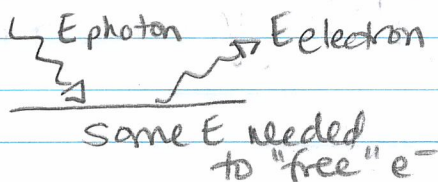 E photon
E electron
some E needed
to "free" e⁻